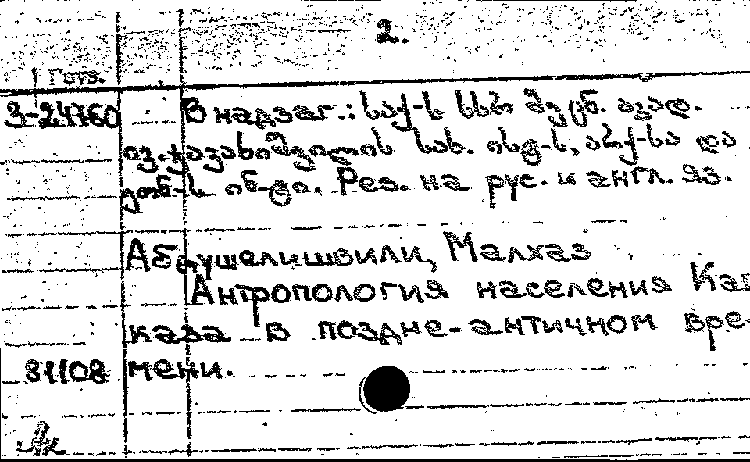 2.
Груз.
3-24760 В надзаг.: საქ-ს სსრ მეცნ. აკად.
ივ. ჯავახიშვილის სახ. ისტ-ს, არქ-სა და
ეთნ-ს ინ-ტი. Рез. на рус. и англ. яз.
Абдушелишвили, Малхаз
Антропология населения Кав
каза в поздне-античном вре-
81108 мени.